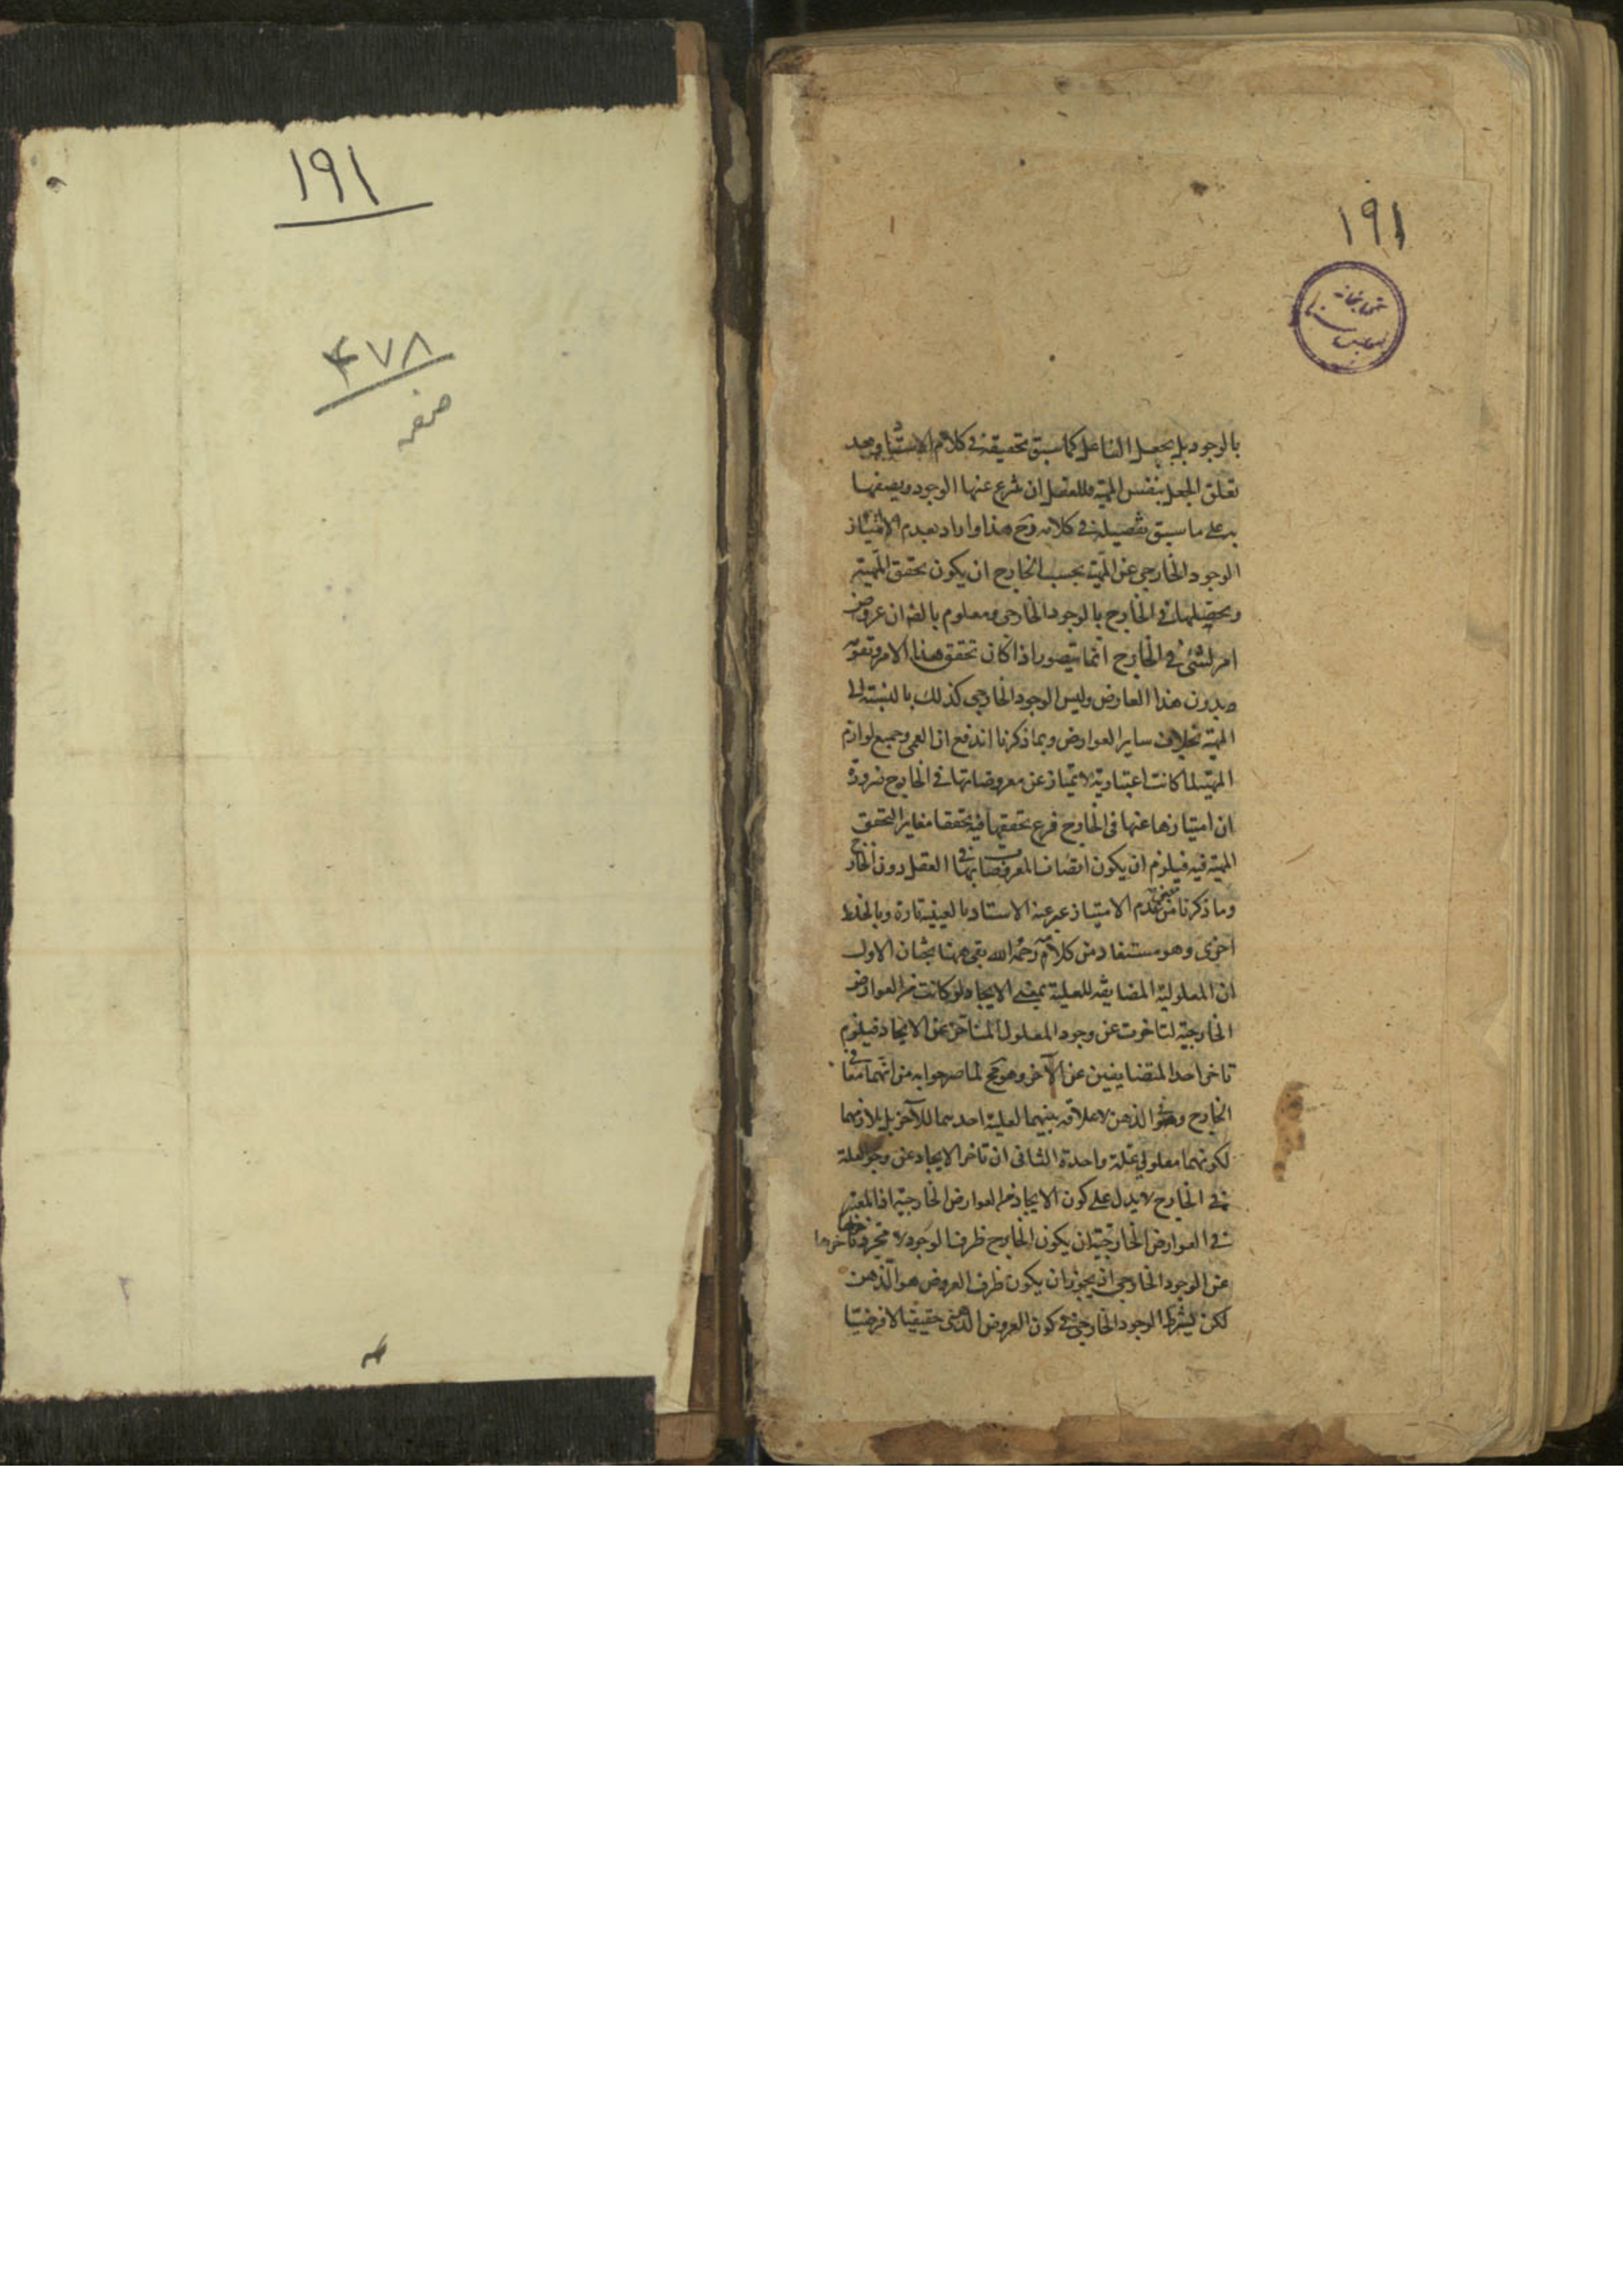 ١٩١
۴٧٨
صفحه
١٩١
بالوجود بل بجعل الفاعل كما سبق تحقيقه فى كلام الاستاد وبعد
تعلق الجعل بنفس المهية فللعقل ان ينزع عنها الوجود ويصفها
به على ما سبق تفصيله فى كلامه وح هذا واراد بعدم الامتياز
الوجود الخارجى عن المهية بحسب الخارج ان يكون تحقق المهية
وتحصيلها فى الخارج بالوجود الخارجى ومعلوم بالضه ان عروض
امر لشئ فى الخارج انما يتصور اذا كان تحقق هذا الامر وتقومه
بدون هذا العارض وليس الوجود الخارجى كذلك بالنسبة الى
المهية بخلاف ساير العوارض وبما ذكرنا اندفع ان العمى وجميع لوازم
المهية لما كانت اعتبارية لا تمتاز عن معروضاتها فى الخارج ضرورة
ان امتيازها عنها فى الخارج فرع تحققها فيه تحققا مغايرا لتحقق
المهية فيه فيلزم ان يكون اتصاف المعروضات بها فى العقل دون الخارج
وما ذكرنا من معنى عدم الامتياز عبر عنه الاستاد بالعينية تارة وبالخلط
اخرى وهو مستفاد من كلامه رحمه الله بقى ههنا بحثان الاول
ان المعلولية المضايفة للعلية بمعنى الايجاد لو كانت من العوارض
الخارجية لتاخرت عن وجود المعلول المتاخر عن الايجاد فيلزم
تاخر احد المتضايفين عن الآخر وهو مح لما صرحوا به من انهما معا فى
الخارج و الذهن لا علاقة بينهما لعلية احدهما للآخر بل تلازمهما
لكونهما معلولى علة واحدة الثانى ان تاخر الايجاد عن وجود العلة
فى الخارج لا يدل على كون الايجاد من العوارض الخارجية اذ المعتبر
فى العوارض الخارجية ان يكون الخارج ظرفا لوجود لا مجرد تاخرها
عن الوجود الخارجى اذ يجوز ان يكون ظرف العروض هو الذهن
لكن يشترط الوجود الخارجى فى كون العروض الذهنى حقيقيا لا فرضيا